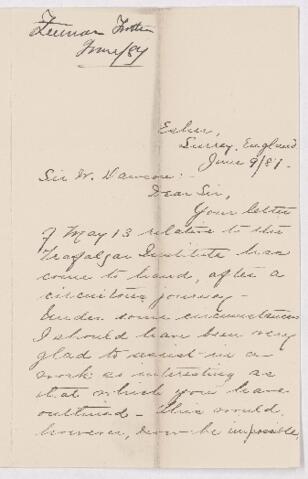 June/87
Esher,
Surrey, England
June 9/87.
Sir W. Dawson:-
Dear Sir,
Your letter
of May 13 relative to the
Trafalgar Institute has
come to hand, after a
circuitous journey -
Under some circumstances
I should have been very
glad to assist in a
work as interesting as
that which you have
outlined - this would,
however, now be impossible,